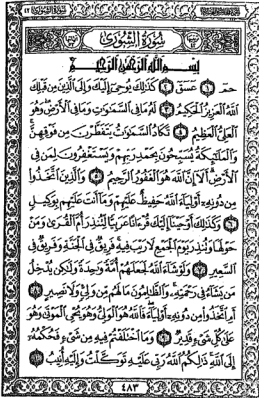 سورة الشورى
بسم الله الرحمن الرحيم
حم ۝١ عسق ۝٢ كذلك يوحي إليك وإلى الذين من قبلك
الله العزيز الحكيم ۝٣ له ما في السموات وما في الأرض وهو
العلي العظيم ۝٤ تكاد السموات يتفطرن من فوقهن
والملئكة يسبحون بحمد ربهم ويستغفرون لمن في
الأرض ألا إن الله هو الغفور الرحيم ۝٥ والذين اتخذوا
من دونه أولياء الله حفيظ عليهم وما أنت عليهم بوكيل
۝٦ وكذلك أوحينا إليك قرءانا عربيا لتنذر أم القرى ومن
حولها وتنذر يوم الجمع لا ريب فيه فريق في الجنة وفريق في
السعير ۝٧ ولو شاء الله لجعلهم أمة وحدة ولكن يدخل
من يشاء في رحمته والظلمون ما لهم من ولي ولا نصير ۝٨
أم اتخذوا من دونه أولياء فالله هو الولي وهو يحي الموتى وهو
على كل شيء قدير ۝٩ وما اختلفتم فيه من شيء فحكمه
إلى الله ذلكم الله ربي عليه توكلت وإليه أنيب ۝١٠
٤٨٣